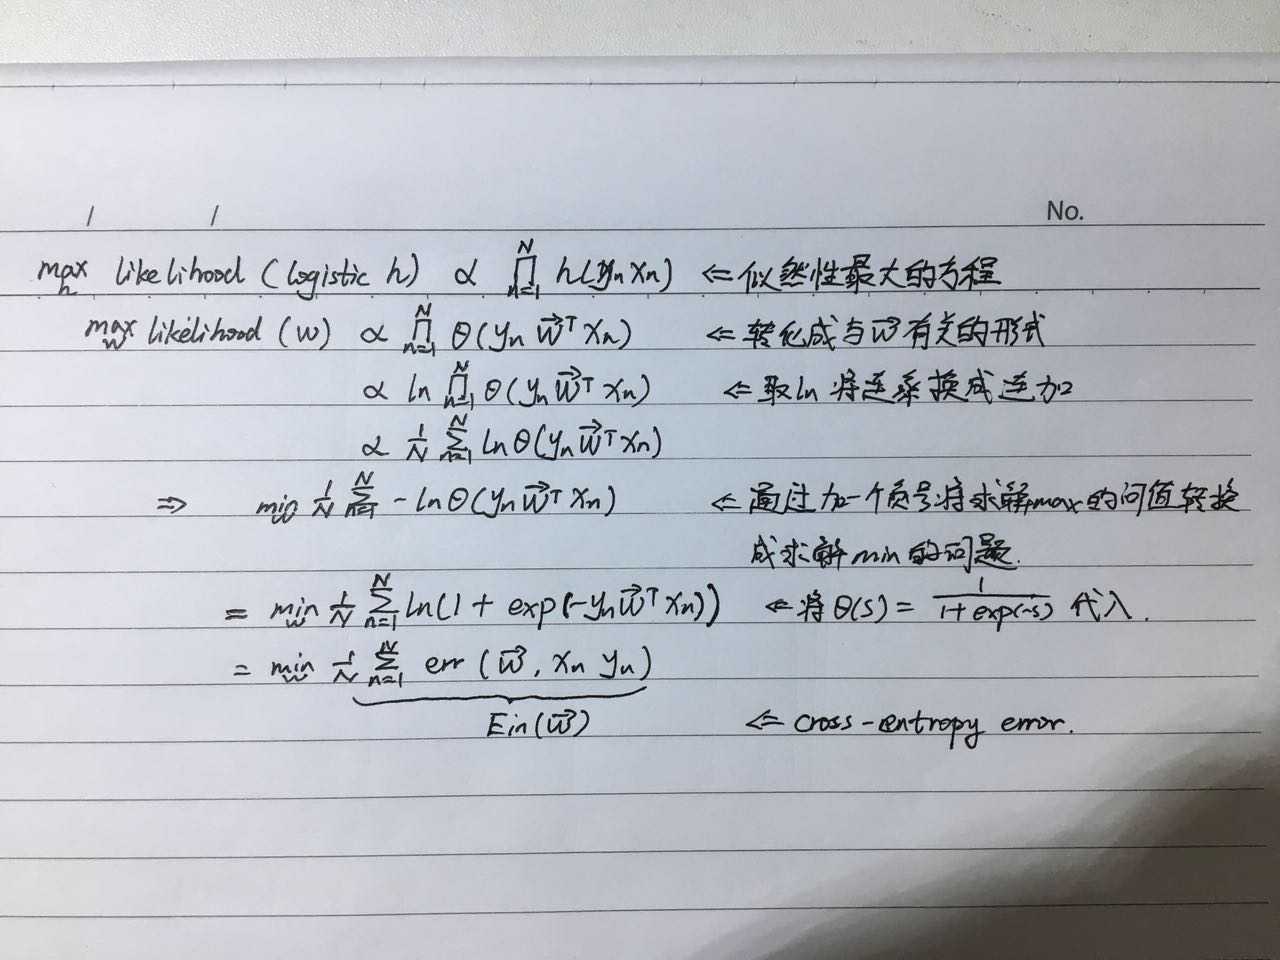 / / No.
max h likelihood (logistic h) ∝ ∏_{n=1}^{N} h(y_n x_n) ⇐ 似然性最大的方程
max w likelihood (w) ∝ ∏_{n=1}^{N} θ(y_n w⃗ᵀ x_n) ⇐ 转化成与w⃗有关的形式
∝ ln ∏_{n=1}^{N} θ(y_n w⃗ᵀ x_n) ⇐ 取ln 将连乘换成连加
∝ 1/N ∑_{n=1}^{N} ln θ(y_n w⃗ᵀ x_n)
⇒ min w 1/N ∑_{n=1}^{N} - ln θ(y_n w⃗ᵀ x_n) ⇐ 通过加一个负号将求解max的问值转换
成求解min的问题.
= min w 1/N ∑_{n=1}^{N} ln(1 + exp(-y_n w⃗ᵀ x_n)) ⇐ 将 θ(s) = 1/(1+exp(-s)) 代入.
= min w 1/N ∑_{n=1}^{N} err (w⃗, x_n y_n)
Ein(w⃗) ⇐ cross-entropy error.